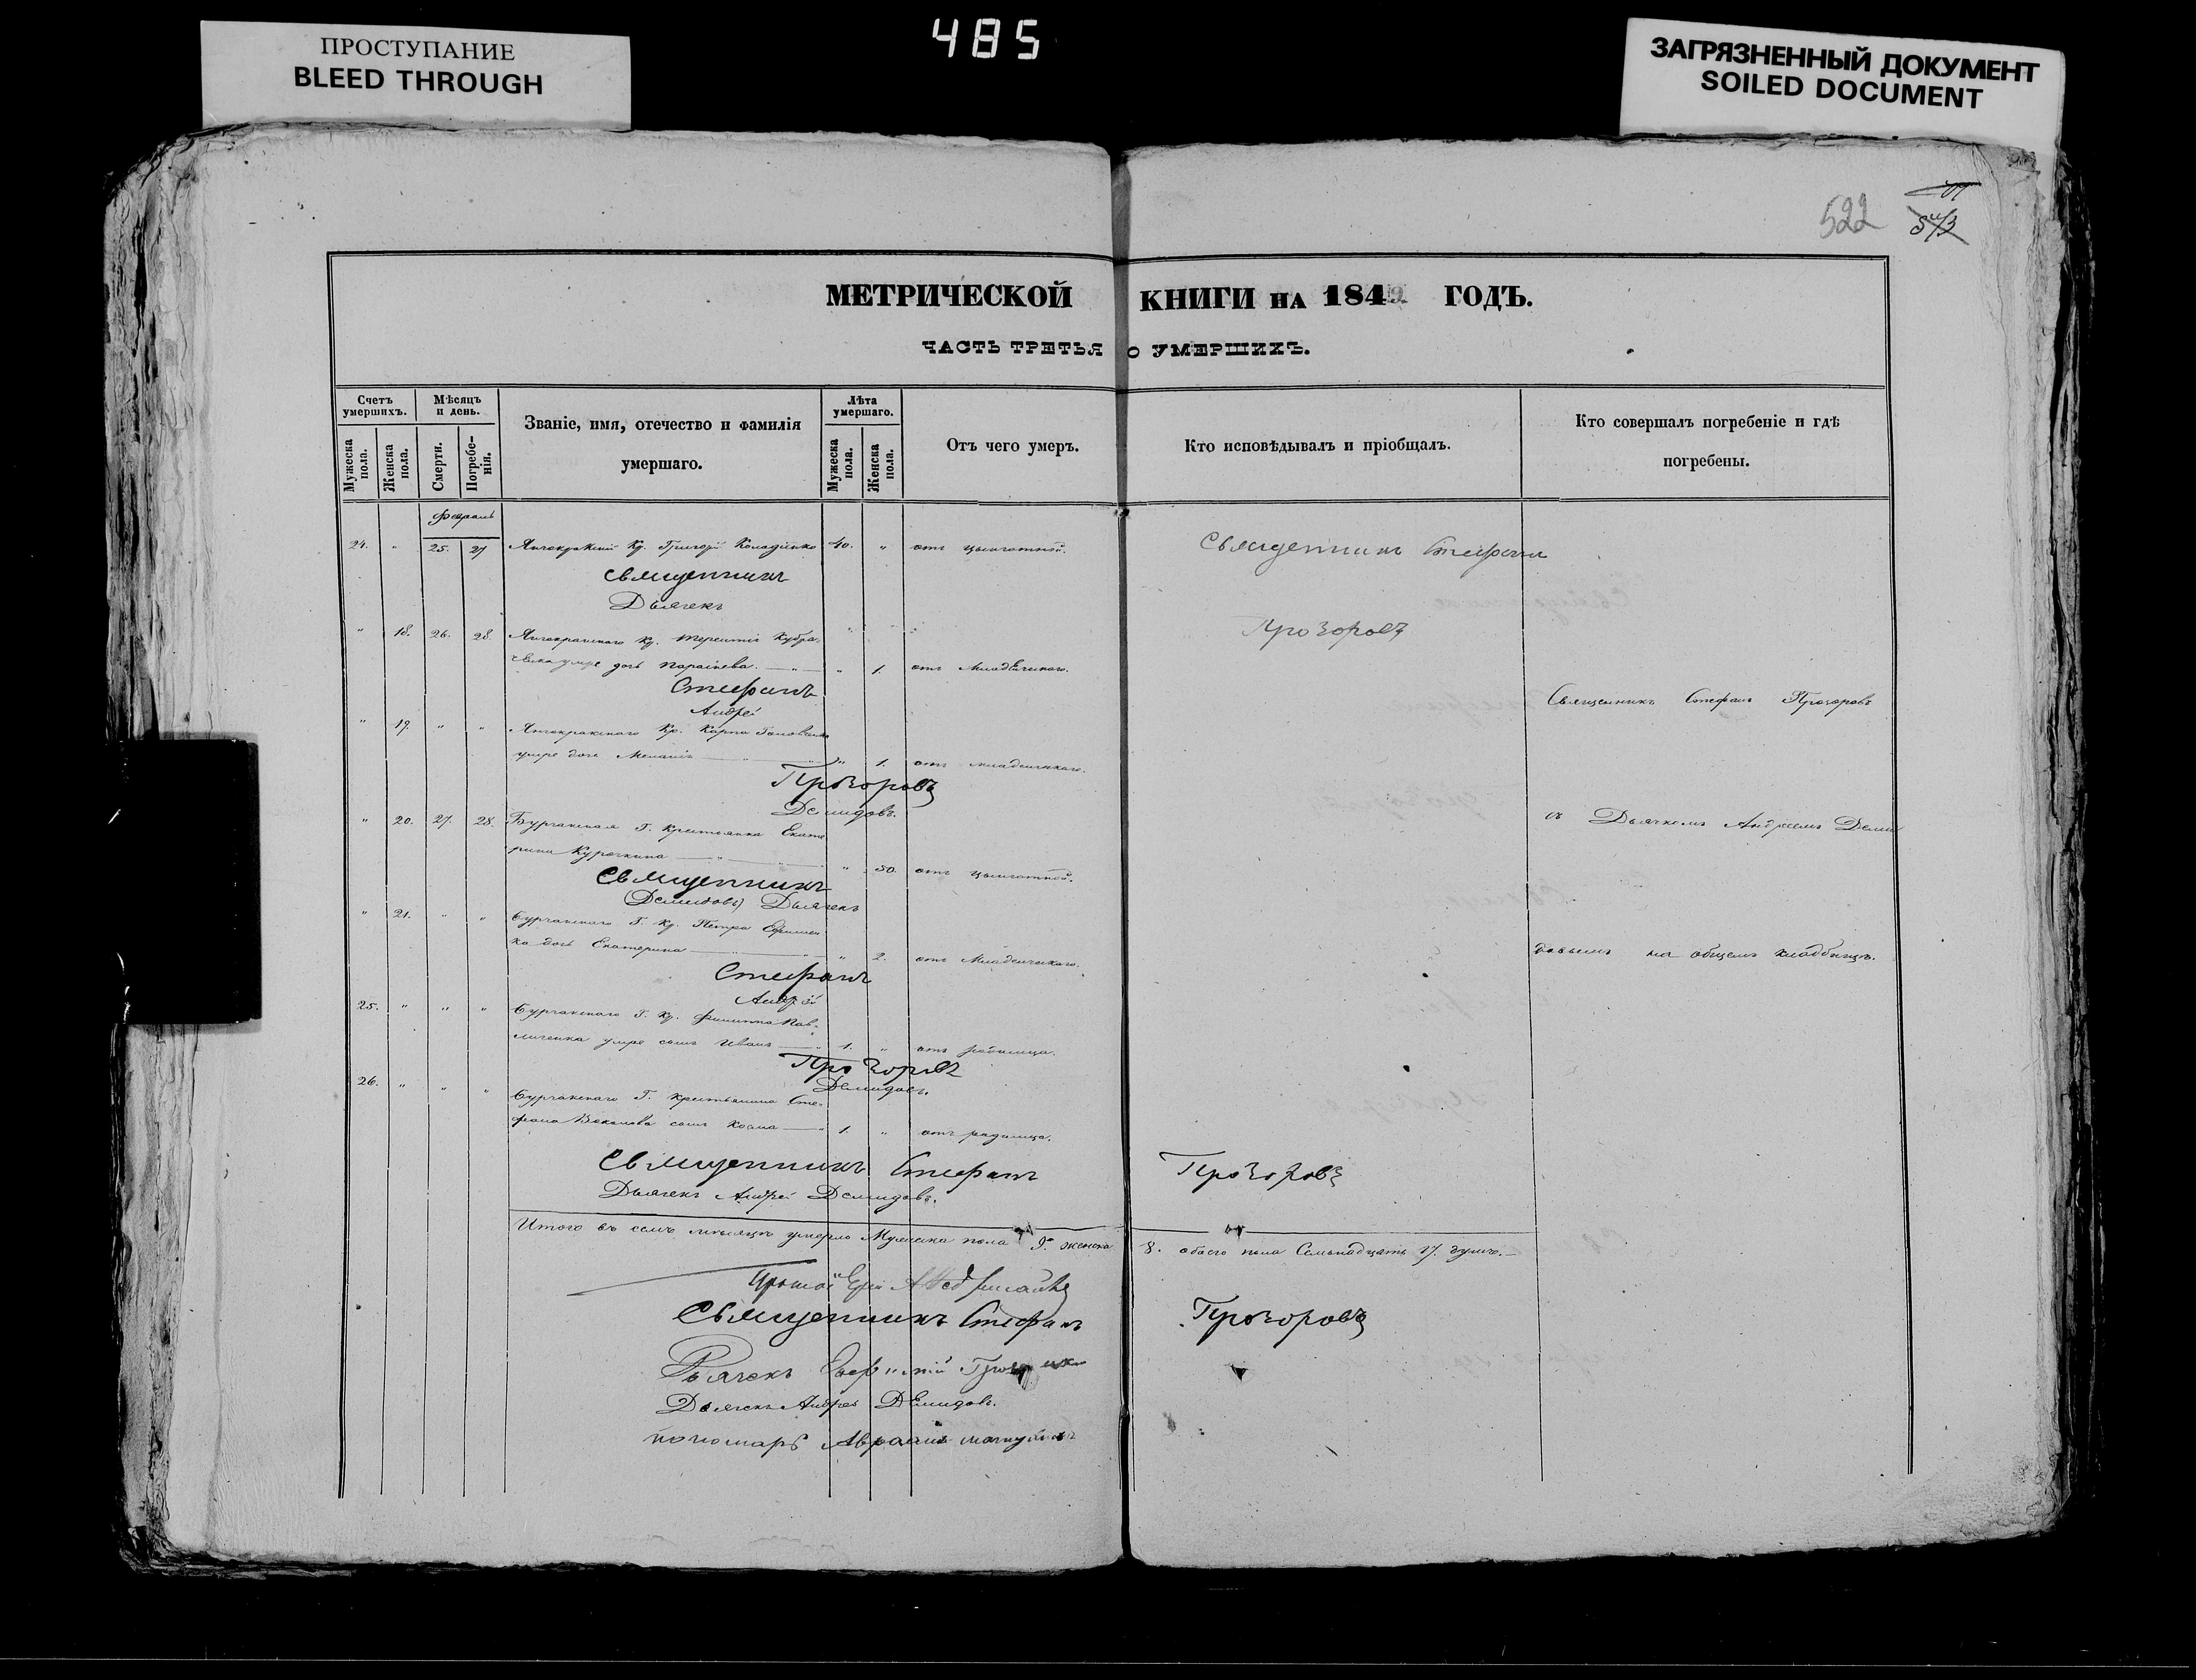 485
ПРОСТУПАНИЕ
BLEED THROUGH
ЗАГРЯЗНЕННЫЙ ДОКУМЕНТ
SOILED DOCUMENT
522
МЕТРИЧЕСКОЙ КНИГИ НА 1849 ГОДЪ.
ЧАСТЬ ТРЕТЬЯ О УМЕРШИХЪ.
Счетъ умершихъ.
Мужеска пола.
Женска пола.
Мѣсяцъ и день.
Смерти.
Погребенія.
Званіе, имя, отечество и фамилія
умершаго.
Лѣта умершаго.
Мужеска пола.
Женска пола.
Отъ чего умеръ.
Кто исповѣдывалъ и пріобщалъ.
Кто совершалъ погребеніе и гдѣ
погребены.
Февраль
24. " 25. 27 Кр. Григорій 40. " отъ цынготной. Священникъ Стефанъ
Священникъ
Дьячекъ
" 18. 26. 28. Кр. Терентія Прозоровъ
умре дочь Параскева " 1. отъ младенческаго.
Стефанъ Священникъ Стефанъ Прозоровъ
Андрей
" 19. " " Кр. Карпа
умре дочь Меланія " 1. отъ младенческаго.
Прозоровъ
Демидовъ. съ Дьячкомъ Андреемъ Деми
" 20. 27. 28. Г. крестьянка Екате
рина Курочкина " 50. отъ цынготной.
Священникъ
Демидовъ Дьячекъ
" 21. " " Г. Кр. Петра Ефимен
ка дочь Екатерина " 2. отъ младенческаго. довымъ на общемъ кладбищѣ.
Стефанъ
Андрей
25. " " " Г. Кр. Филиппа Пав
личенка умре сынъ Иванъ 1. " отъ родимца.
Прозоровъ
Демидовъ.
26. " " " Г. крестьянина Сте
фана сынъ Косма 1. " отъ родимца.
Священникъ Стефанъ Прозоровъ
Дьячекъ Андрей Демидовъ.
Итого въ семъ мѣсяцѣ умерло Мужеска пола 9. женска 8. обоего пола Семьнадцать 17. душъ.
Священникъ Стефанъ Прозоровъ
Дьячекъ
Дьячекъ Андрей Демидовъ.
пономарь Авраамъ